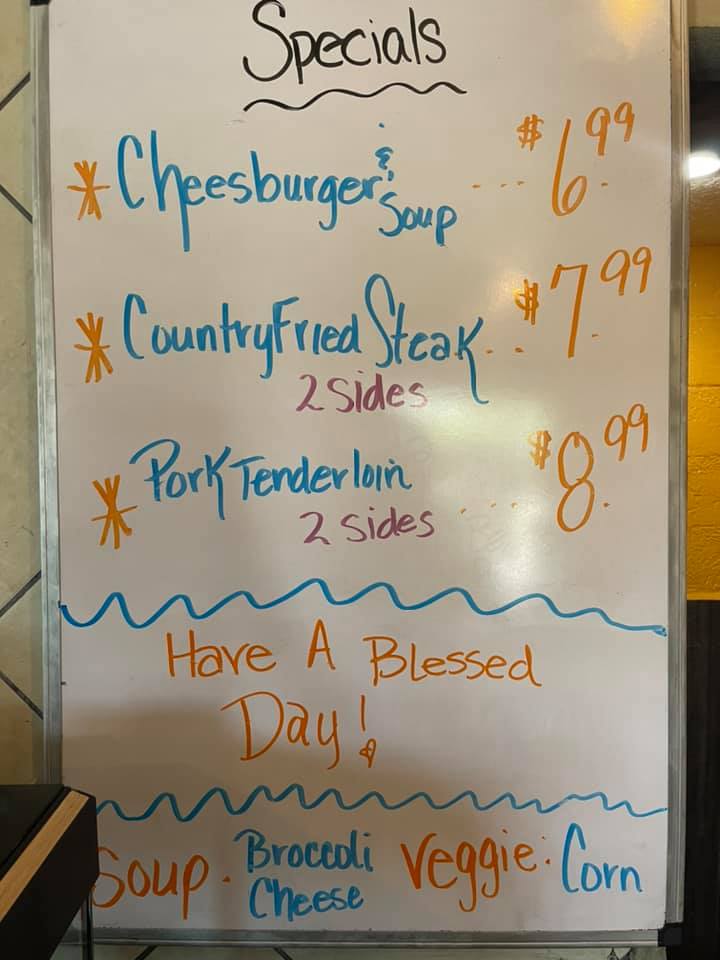 Specials
* Cheesburger & Soup .... $6.99
* Country Fried Steak .... $7.99
2 Sides
* Pork Tenderloin .... $8.99
2 Sides
Have A Blessed
Day!
Soup. Broccoli Cheese Veggie: Corn